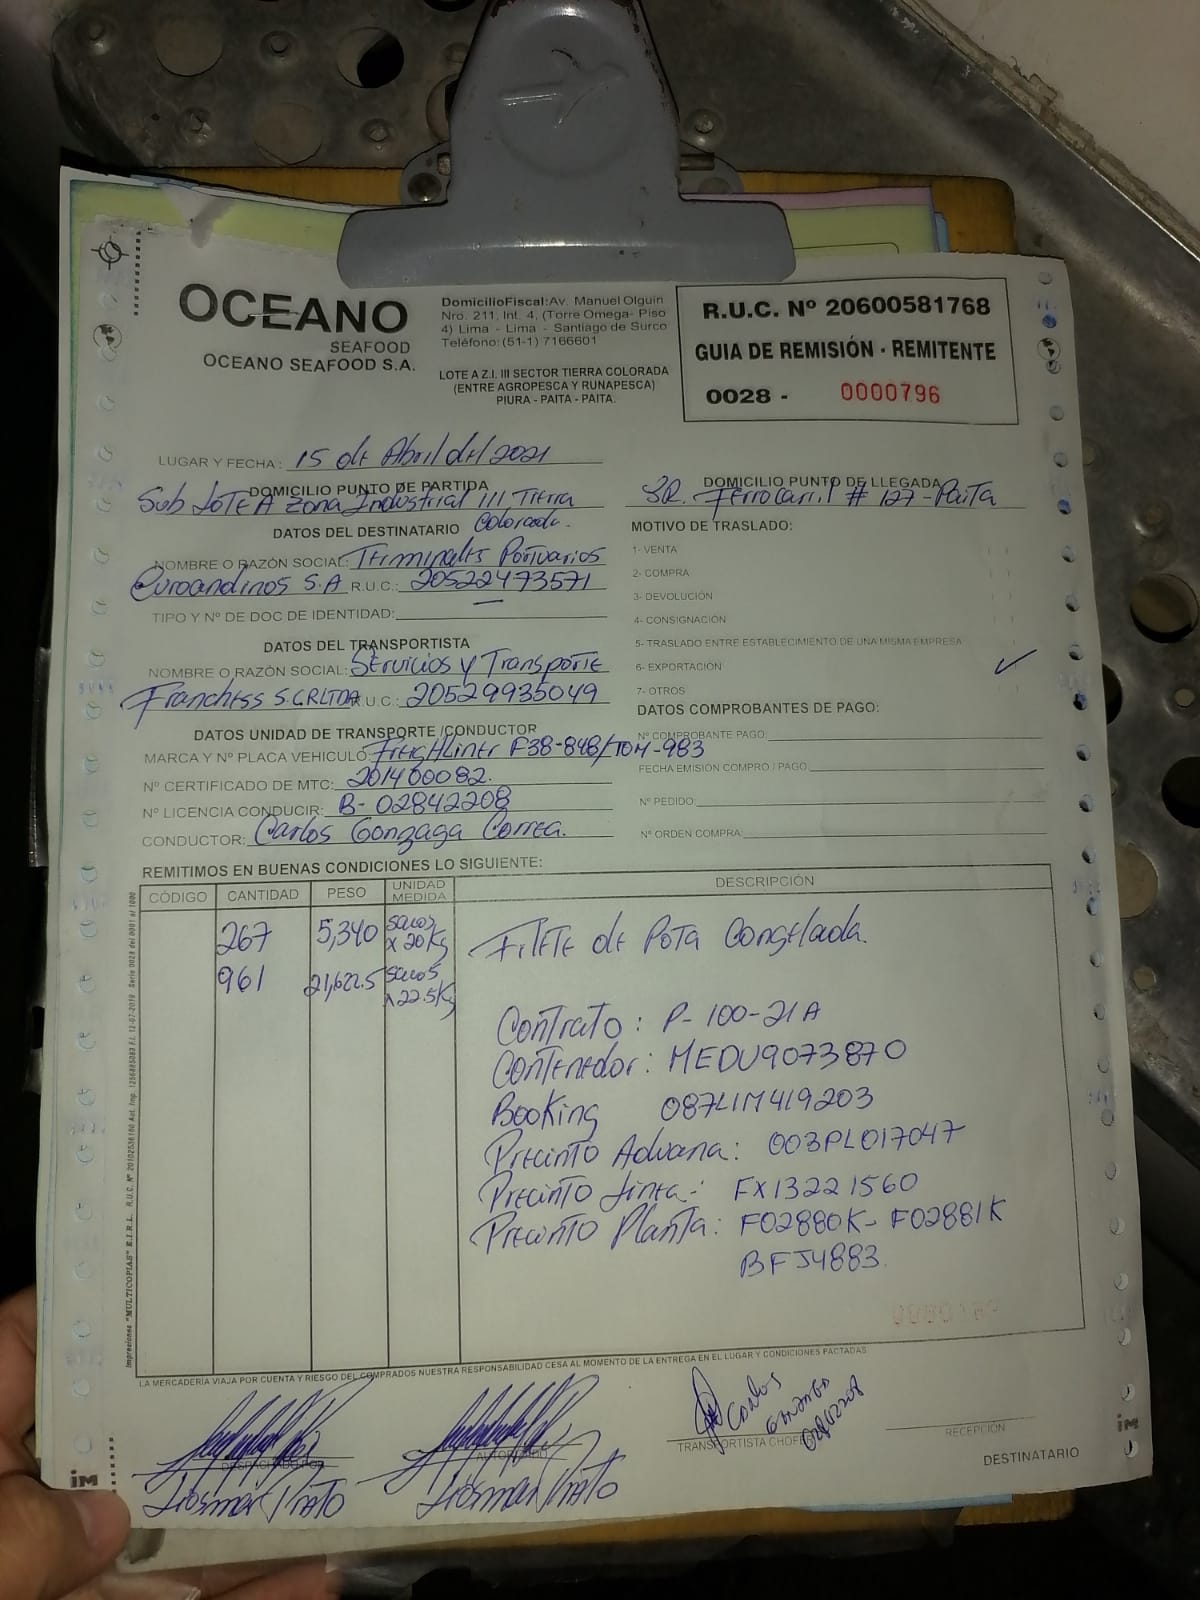 OCEANO
SEAFOOD
OCEANO SEAFOOD S.A.
DomicilioFiscal:Av. Manuel Olguin
Nro. 211, Int. 4, (Torre Omega- Piso
4) Lima - Lima - Santiago de Surco
Teléfono:(51-1) 7166601
LOTE A Z.I. III SECTOR TIERRA COLORADA
(ENTRE AGROPESCA Y RUNAPESCA)
PIURA - PAITA - PAITA.
R.U.C. Nº 20600581768
GUIA DE REMISIÓN - REMITENTE
0028 - 0000796
LUGAR Y FECHA: 15 de Abril del 2021
DOMICILIO PUNTO DE PARTIDA
Sub LOTE A Zona Industrial III Tierra
Colorada.
DOMICILIO PUNTO DE LLEGADA
JR. Ferrocarril # 127-Paita
DATOS DEL DESTINATARIO
NOMBRE O RAZÓN SOCIAL: Terminales Portuarios
Euroandinos S.A R.U.C.: 20522473571
TIPO Y Nº DE DOC DE IDENTIDAD:
DATOS DEL TRANSPORTISTA
NOMBRE O RAZÓN SOCIAL: Servicios y Transporte
Franchess S.C.RLTDA R.U.C.: 20529935049
DATOS UNIDAD DE TRANSPORTE /CONDUCTOR
MARCA Y Nº PLACA VEHICULO: Freightliner F38-848/TOM-983
Nº CERTIFICADO DE MTC: 201400082.
Nº LICENCIA CONDUCIR: B- 02842208
CONDUCTOR: Carlos Gonzaga Correa.
MOTIVO DE TRASLADO:
1- VENTA ( )
2- COMPRA ( )
3- DEVOLUCIÓN ( )
4- CONSIGNACIÓN ( )
5- TRASLADO ENTRE ESTABLECIMIENTO DE UNA MISMA EMPRESA ( )
6- EXPORTACIÓN ✓
7- OTROS ( )
DATOS COMPROBANTES DE PAGO:
Nº COMPROBANTE PAGO:
FECHA EMISIÓN COMPRO / PAGO:
Nº PEDIDO:
Nº ORDEN COMPRA:
REMITIMOS EN BUENAS CONDICIONES LO SIGUIENTE:
CÓDIGO CANTIDAD PESO UNIDAD MEDIDA DESCRIPCIÓN
267 5,340 sacos x 20Kg Filete de Pota Congelada.
961 21,622.5 sacos x 22.5Kg
Contrato: P-100-21A
Contenedor: MEDU9073870
Booking 087LIM419203
Precinto Aduana: 003PL017047
Precinto Linea: FX13221560
Precinto Planta: F02880K- F02881K
BFJ4883.
Impresiones "MULTICOPIAS" E.I.R.L. R.U.C. Nº 20102536160 Aut. Imp. 1256885083 F.I. 12-07-2019 Serie 0028 del 0001 al 1000
LA MERCADERÍA VIAJA POR CUENTA Y RIESGO DEL COMPRADOS NUESTRA RESPONSABILIDAD CESA AL MOMENTO DE LA ENTREGA EN EL LUGAR Y CONDICIONES PACTADAS
Carlos
Gonzaga
02842208
DESPACHADO POR
TRANSPORTISTA CHOFER
RECEPCIÓN
Liosmar Prato
Liosmar Prato
DESTINATARIO
iM
iM